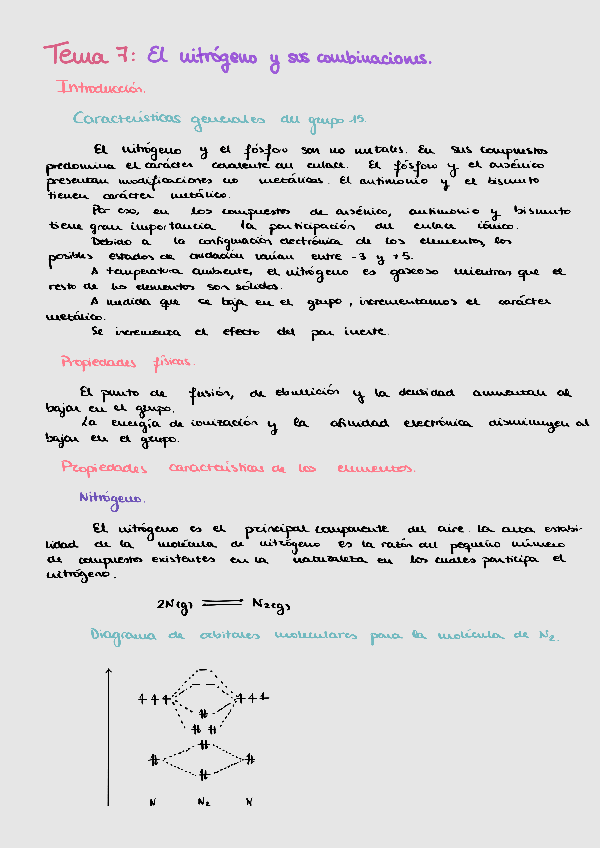 Tema 7: El nitrógeno y sus combinaciones.
Introducción.
Características generales del grupo 15.
El nitrógeno y el fósforo son no metales. En sus compuestos
predomina el carácter covalente del enlace. El fósforo y el arsénico
presentan modificaciones no metálicas. El antimonio y el bismuto
tienen carácter metálico.
Por eso, en los compuestos de arsénico, antimonio y bismuto
tiene gran importancia la participación del enlace iónico.
Debido a la configuración electrónica de los elementos, los
posibles estados de oxidación varían entre -3 y +5.
A temperatura ambiente, el nitrógeno es gaseoso mientras que el
resto de los elementos son sólidos.
A medida que se baja en el grupo, incrementamos el carácter
metálico.
Se incrementa el efecto del par inerte.
Propiedades físicas.
El punto de fusión, de ebullición y la densidad aumentan al
bajar en el grupo.
La energía de ionización y la afinidad electrónica disminuyen al
bajar en el grupo.
Propiedades características de los elementos.
Nitrógeno.
El nitrógeno es el principal componente del aire. La alta estabi-
lidad de la molécula de nitrógeno es la razón del pequeño número
de compuestos existentes en la naturaleza en los cuales participa el
nitrógeno.
2N(g) ⇌ N₂(g)
Diagrama de orbitales moleculares para la molécula de N₂.
N N₂ N